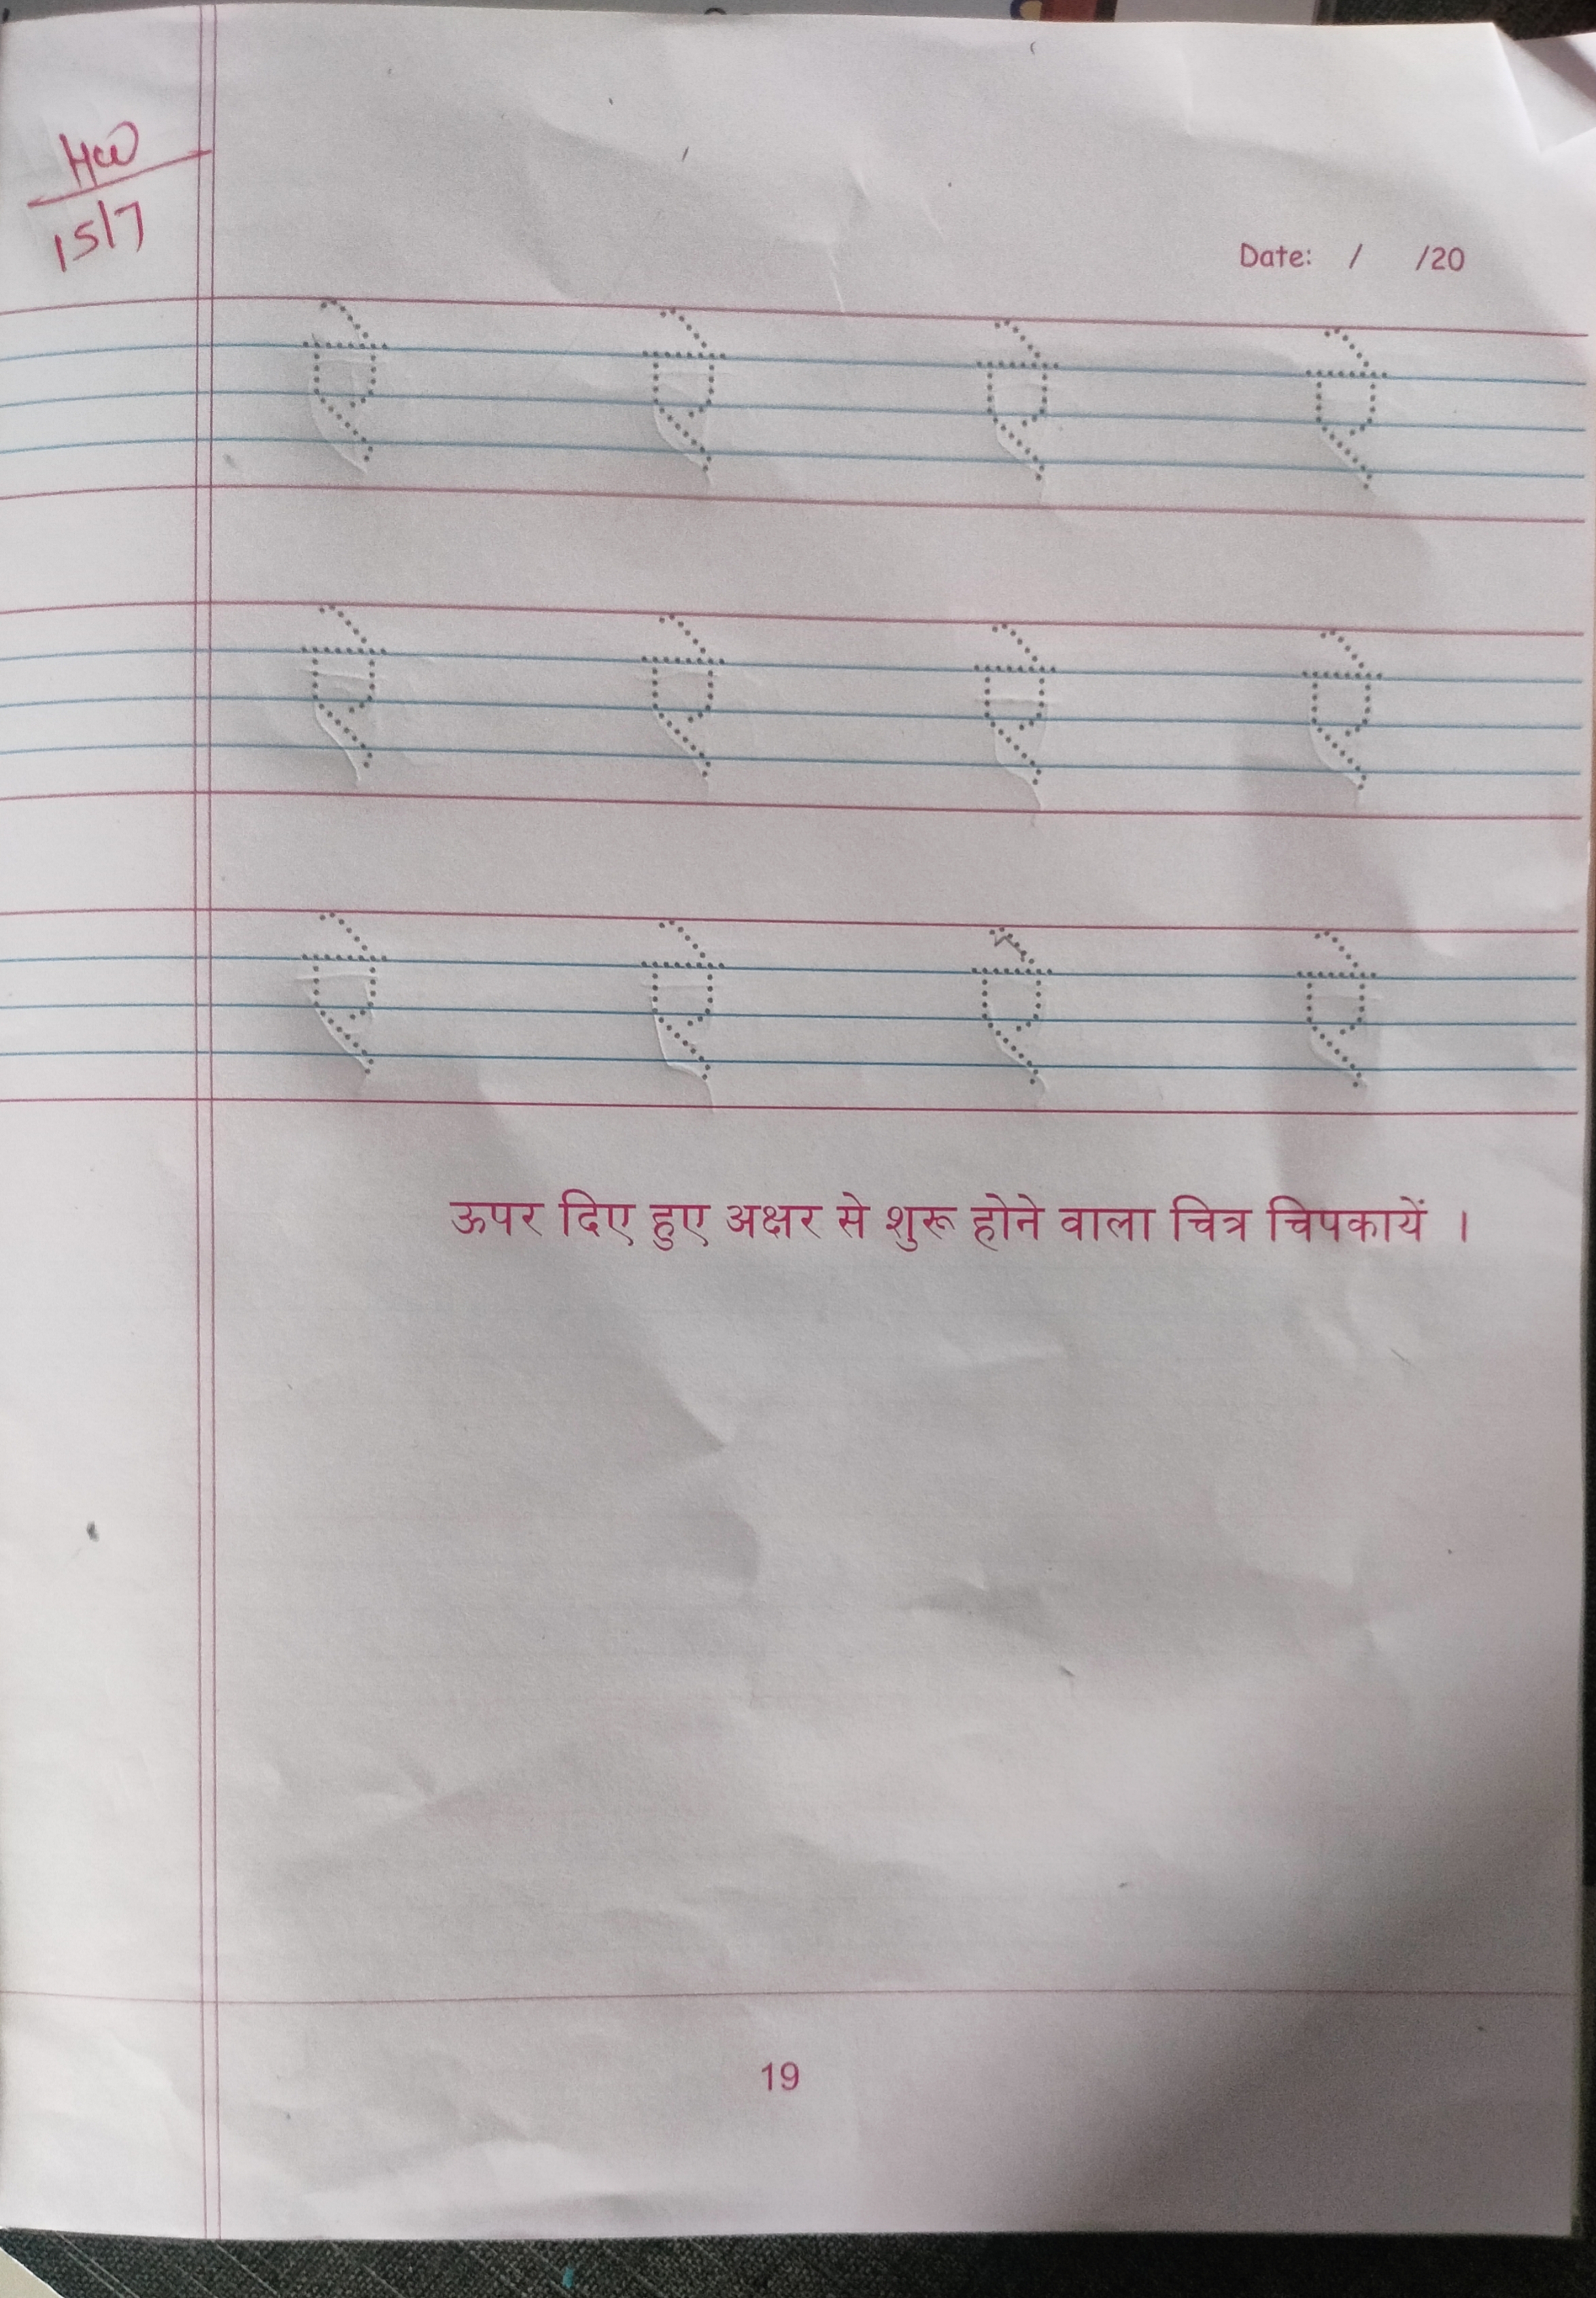 HW
15/7
Date: / /20
ऐ ऐ ऐ ऐ
ऐ ऐ ऐ ऐ
ऐ ऐ ऐ ऐ
ऊपर दिए हुए अक्षर से शुरू होने वाला चित्र चिपकायें ।
19